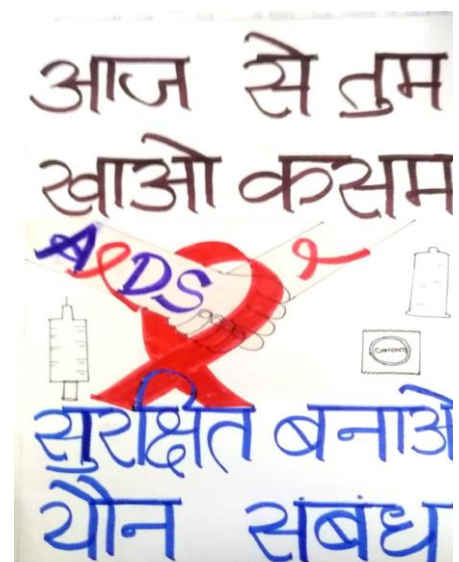 आज से तुम
खाओ कसम
AIDS
CONDOMS
सुरक्षित बनाओ
यौन सबंध